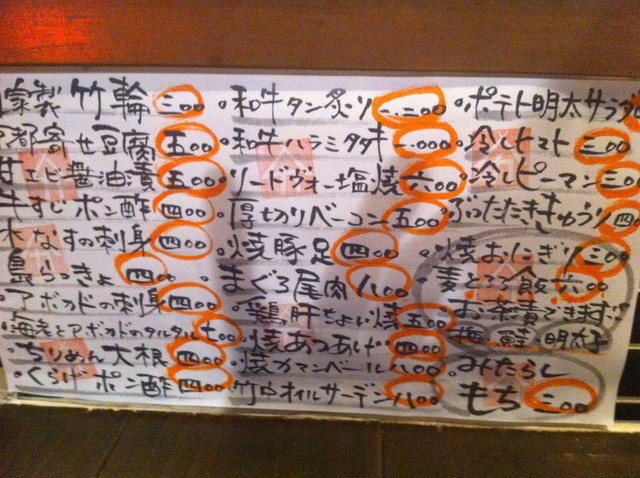 家製竹輪 三〇〇
都寄せ豆腐 五〇〇
甘エビ醤油漬 五〇〇
牛すじポン酢 四〇〇
水なすの刺身 四〇〇
島らっきょ 四〇〇
アボカドの刺身 四〇〇
海老とアボカドのタルタル 七〇〇
ちりめん大根 四〇〇
くらげポン酢 四〇〇
和牛タン炙り 一、三〇〇
和牛ハラミタタキ 一、〇〇〇
リードヴォー塩焼 六〇〇
厚切りベーコン 五〇〇
焼豚足 四〇〇
まぐろ尾肉 八〇〇
鶏肝ちょい焼 五〇〇
焼あつあげ 四〇〇
焼カマンベール 八〇〇
竹中オイルサーデン 八〇〇
ポテト明太サラダ
冷しトマト 三〇〇
冷しピーマン 三〇
ぶったたききゅうり 四
焼おにぎり 三〇〇
麦とろろ飯 六〇〇
お茶漬できます
梅 鮭 明太子
みたらし
もち 三〇〇